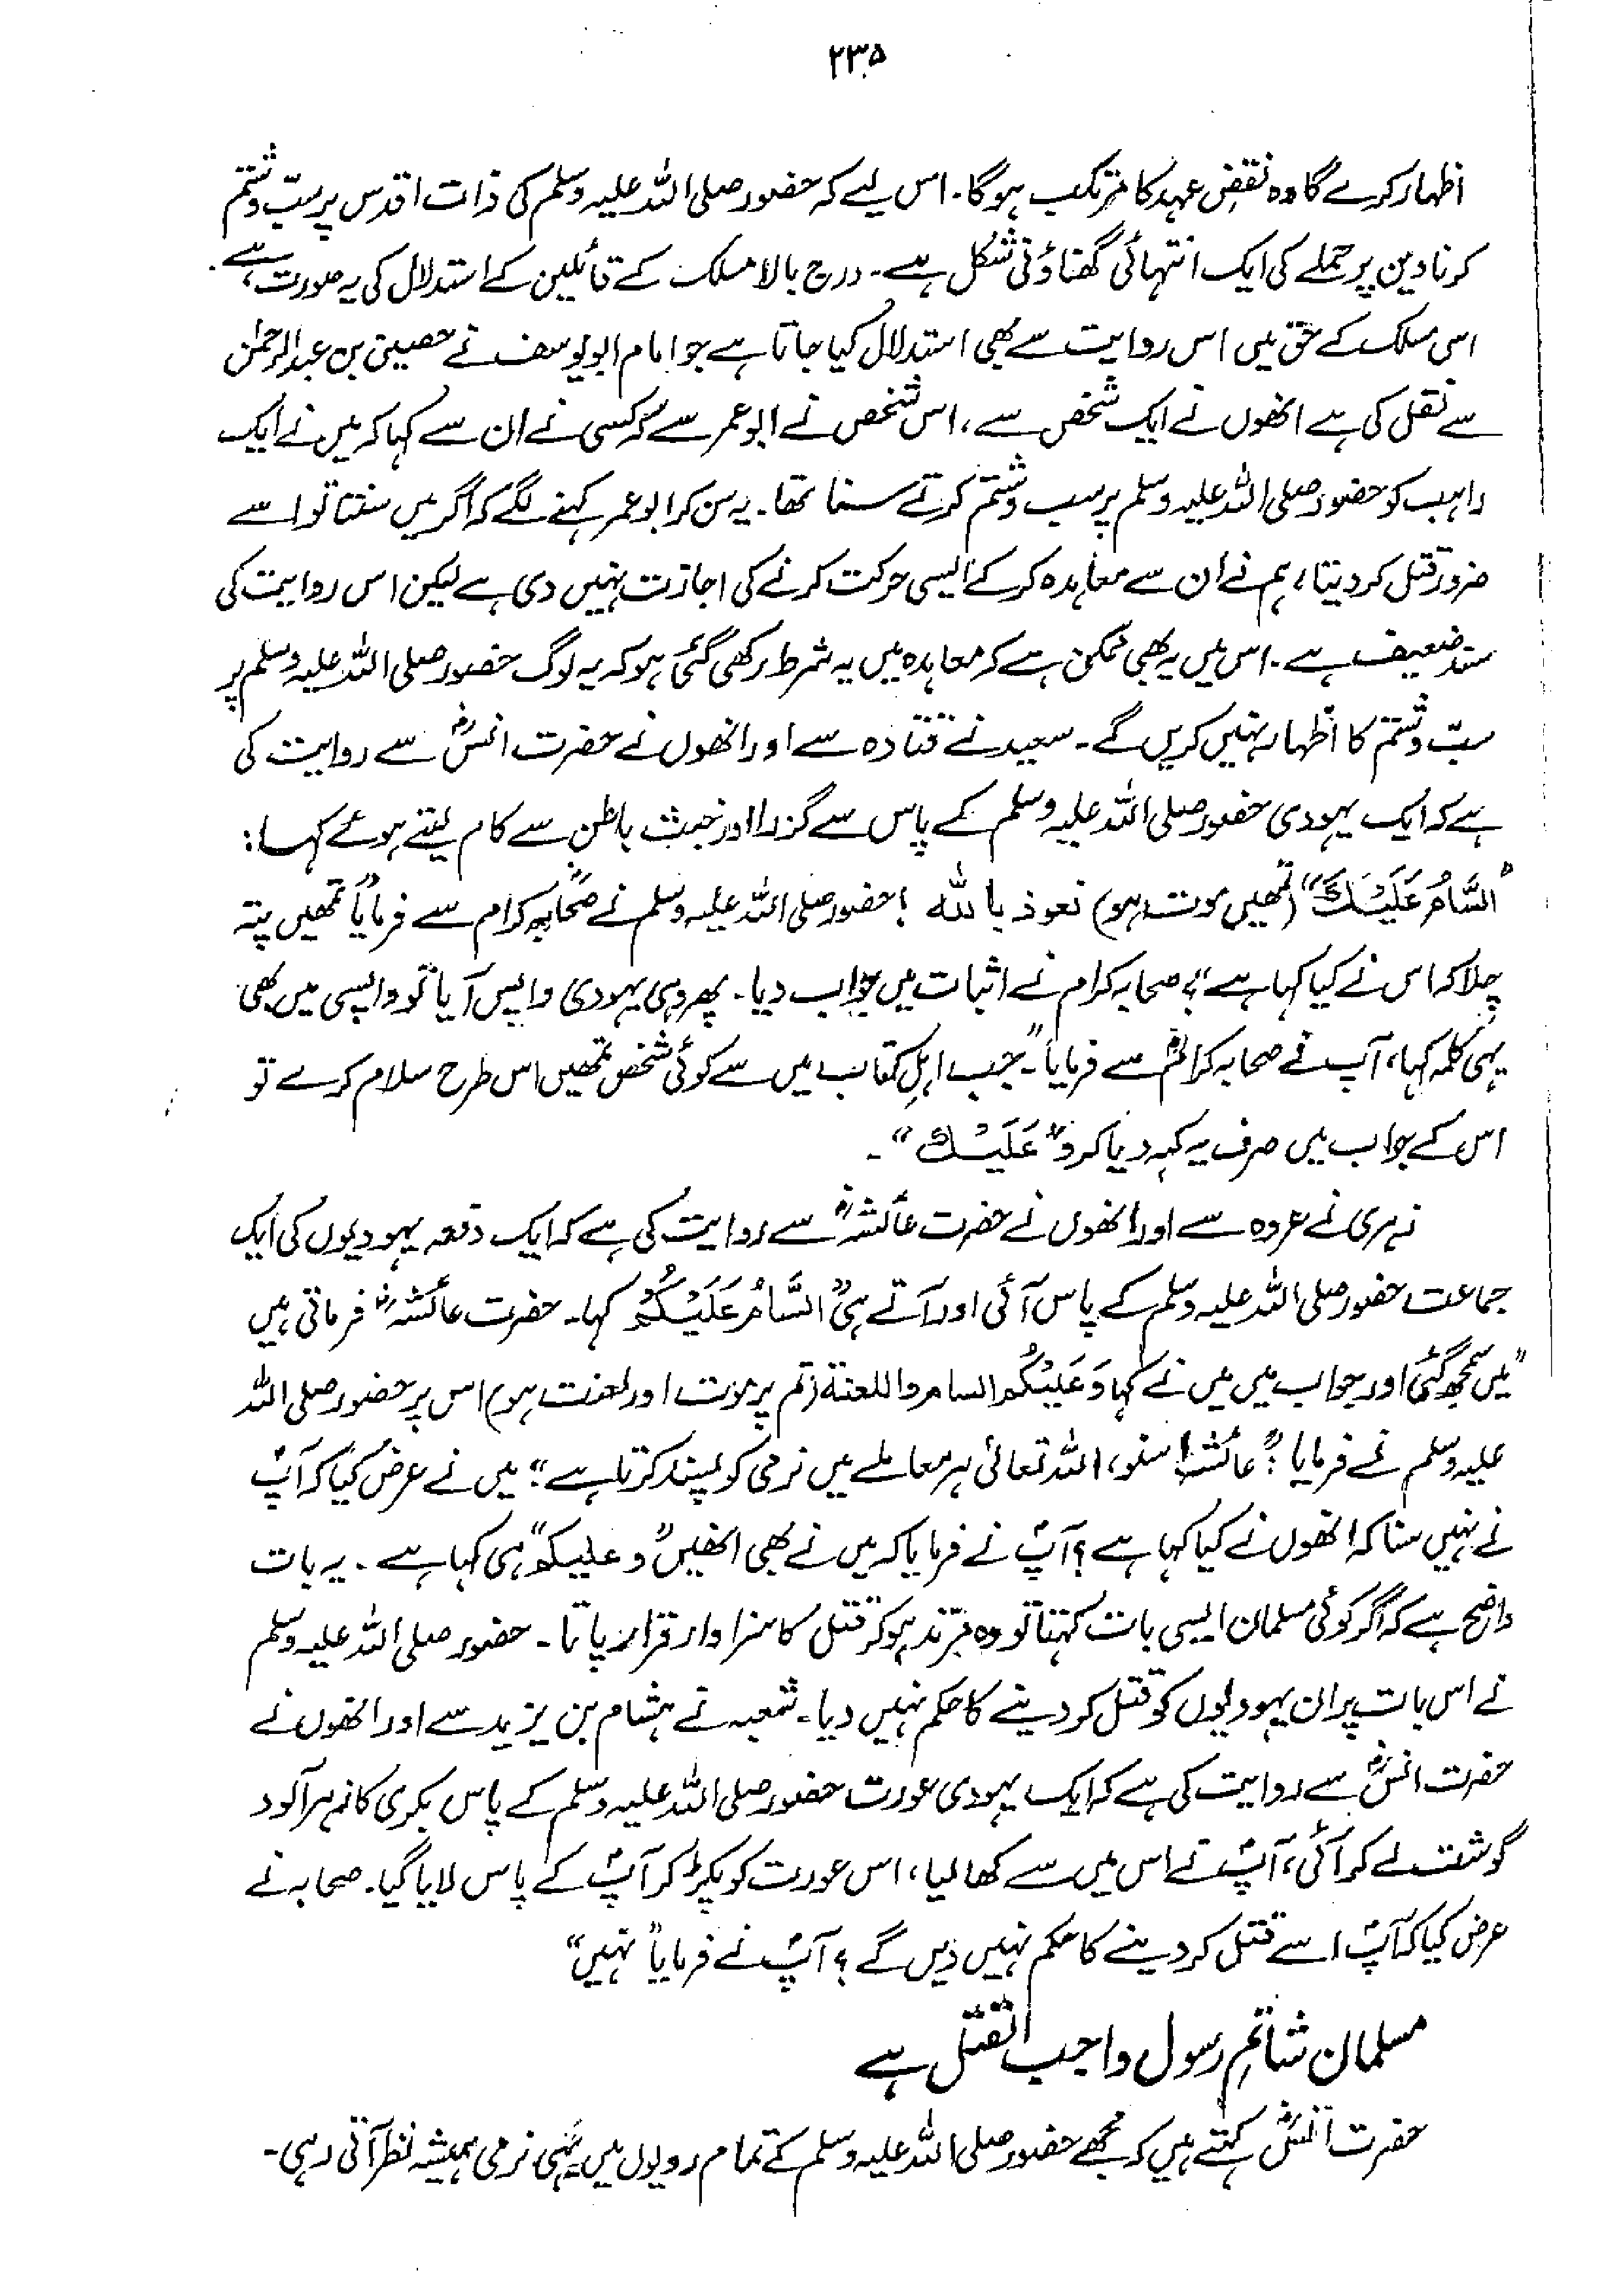 ۲۳۵
اظہار کرے گا وہ نقضِ عہد کا مرتکب ہوگا۔ اس لیے کہ حضور صلی اللہ علیہ وسلم کی ذات اقدس پر سبّ و شتم
کرنا دین پر حملے کی ایک انتہائی گھناؤنی شکل ہے۔ درج بالا مسلک کے قائلین کے استدلال کی یہ صورت ہے۔
اسی مسلک کے حق میں اس روایت سے بھی استدلال کیا جاتا ہے جو امام ابویوسف نے حصین بن عبدالرحمٰن
سے نقل کی ہے انھوں نے ایک شخص سے، اس شخص نے ابوعمر سے کہ کسی نے ان سے کہا کہ میں نے ایک
راہب کو حضور صلی اللہ علیہ وسلم پر سب و شتم کرتے سنا تھا۔ یہ سن کر ابوعمر کہنے لگے کہ اگر میں سنتا تو اسے
ضرور قتل کر دیتا، ہم نے ان سے معاہدہ کر کے ایسی حرکت کرنے کی اجازت نہیں دی ہے لیکن اس روایت کی
سند ضعیف ہے۔ اس میں یہ بھی ممکن ہے کہ معاہدہ میں یہ شرط رکھی گئی ہو کہ یہ لوگ حضور صلی اللہ علیہ وسلم پر
سبّ و شتم کا اظہار نہیں کریں گے۔ سعید نے قتادہ سے اور انھوں نے حضرت انسؓ سے روایت کی
ہے کہ ایک یہودی حضور صلی اللہ علیہ وسلم کے پاس سے گزرا اور خبث باطن سے کام لیتے ہوئے کہا :
"السَّامُ عَلَيْكَ" (تمھیں موت ہو) نعوذ باللہ ! حضور صلی اللہ علیہ وسلم نے صحابہ کرام سے فرمایا "تمھیں پتہ
چلا کہ اس نے کیا کہا ہے"؟ صحابہ کرام نے اثبات میں جواب دیا۔ پھر وہی یہودی واپس آیا تو واپسی میں بھی
یہی کلمہ کہا، آپ نے صحابہ کرامؓ سے فرمایا"۔ جب اہلِ کتاب میں سے کوئی شخص تمھیں اس طرح سلام کرے تو
اس کے جواب میں صرف یہ کہہ دیا کرو "عَلَيْكَ"۔
زہری نے عروہ سے اور انھوں نے حضرت عائشہؓ سے روایت کی ہے کہ ایک دفعہ یہودیوں کی ایک
جماعت حضور صلی اللہ علیہ وسلم کے پاس آئی اور آتے ہی "السَّامُ عَلَيْكُمْ کہا۔ حضرت عائشہؓ فرماتی ہیں
"میں سمجھ گئی اور جواب میں میں نے کہا وَعَلَيْكُمُ السام واللعنة (تم پر موت اور لعنت ہو) اس پر حضور صلی اللہ
علیہ وسلم نے فرمایا : "عائشہ! سنو، اللہ تعالیٰ ہر معاملے میں نرمی کو پسند کرتا ہے" میں نے عرض کیا کہ آپؐ
نے نہیں سنا کہ انھوں نے کیا کہا ہے ؟ آپؐ نے فرمایا کہ میں نے بھی انھیں "وعلیکم" ہی کہا ہے۔ یہ بات
واضح ہے کہ اگر کوئی مسلمان ایسی بات کہتا تو وہ مرتد ہو کر قتل کا سزاوار قرار پاتا۔ حضور صلی اللہ علیہ وسلم
نے اس بات پر ان یہودیوں کو قتل کر دینے کا حکم نہیں دیا۔ شعبہ نے ہشام بن یزید سے اور انھوں نے
حضرت انسؓ سے روایت کی ہے کہ ایک یہودی عورت حضور صلی اللہ علیہ وسلم کے پاس بکری کا زہر آلود
گوشت لے کر آئی، آپؐ نے اس میں سے کھا لیا، اس عورت کو پکڑ کر آپؐ کے پاس لایا گیا۔ صحابہ نے
عرض کیا کہ آپؐ اسے قتل کر دینے کا حکم نہیں دیں گے ؟ آپؐ نے فرمایا "نہیں"
مسلمان شاتمِ رسول واجب القتل ہے
حضرت انسؓ کہتے ہیں کہ مجھے حضور صلی اللہ علیہ وسلم کے تمام رویوں میں یہی نرمی ہمیشہ نظر آتی رہی۔